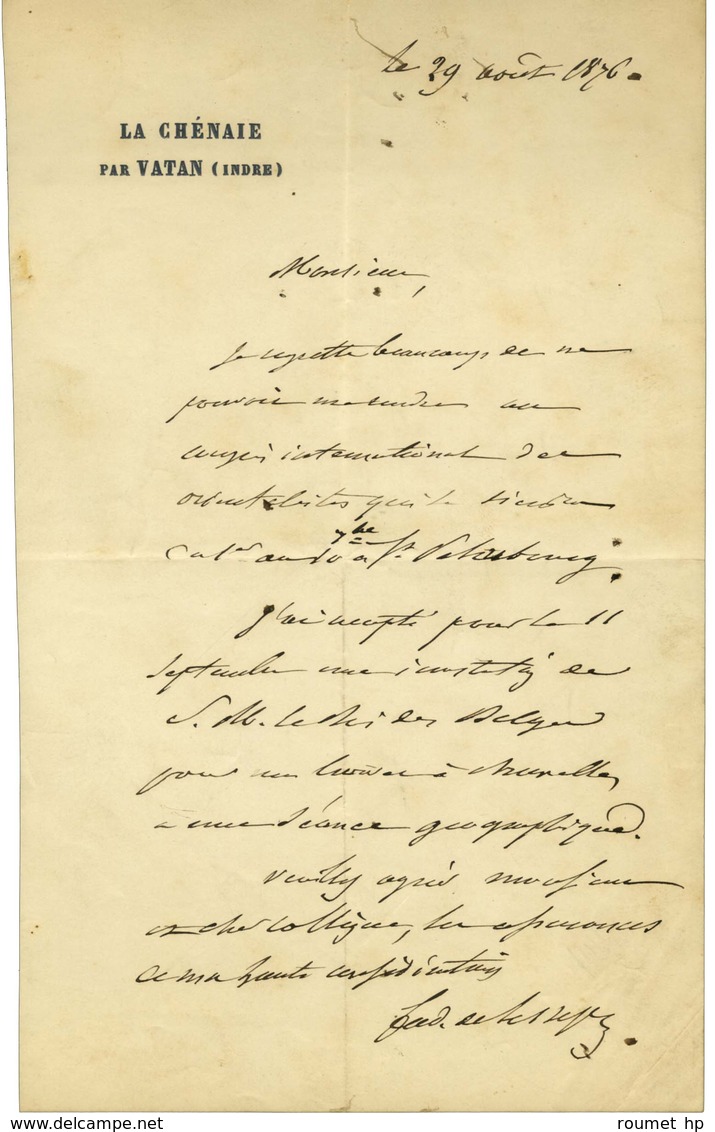 le 29 août 1876.
LA CHÉNAIE
PAR VATAN (INDRE)
Monsieur,
Je regrette beaucoup de ne
pouvoir me rendre au
congrès international des
orientalistes qui se réunira
au 10 7bre à St Pétersbourg.
J'ai accepté pour le 11
septembre une invitation de
S. M. le Roi des Belges
pour me trouver à Bruxelles,
a une séance géographique.
Veuillez agréer monsieur
et cher collègue, les assurances
de ma haute considération
Ferd. de Lesseps
roumet hp